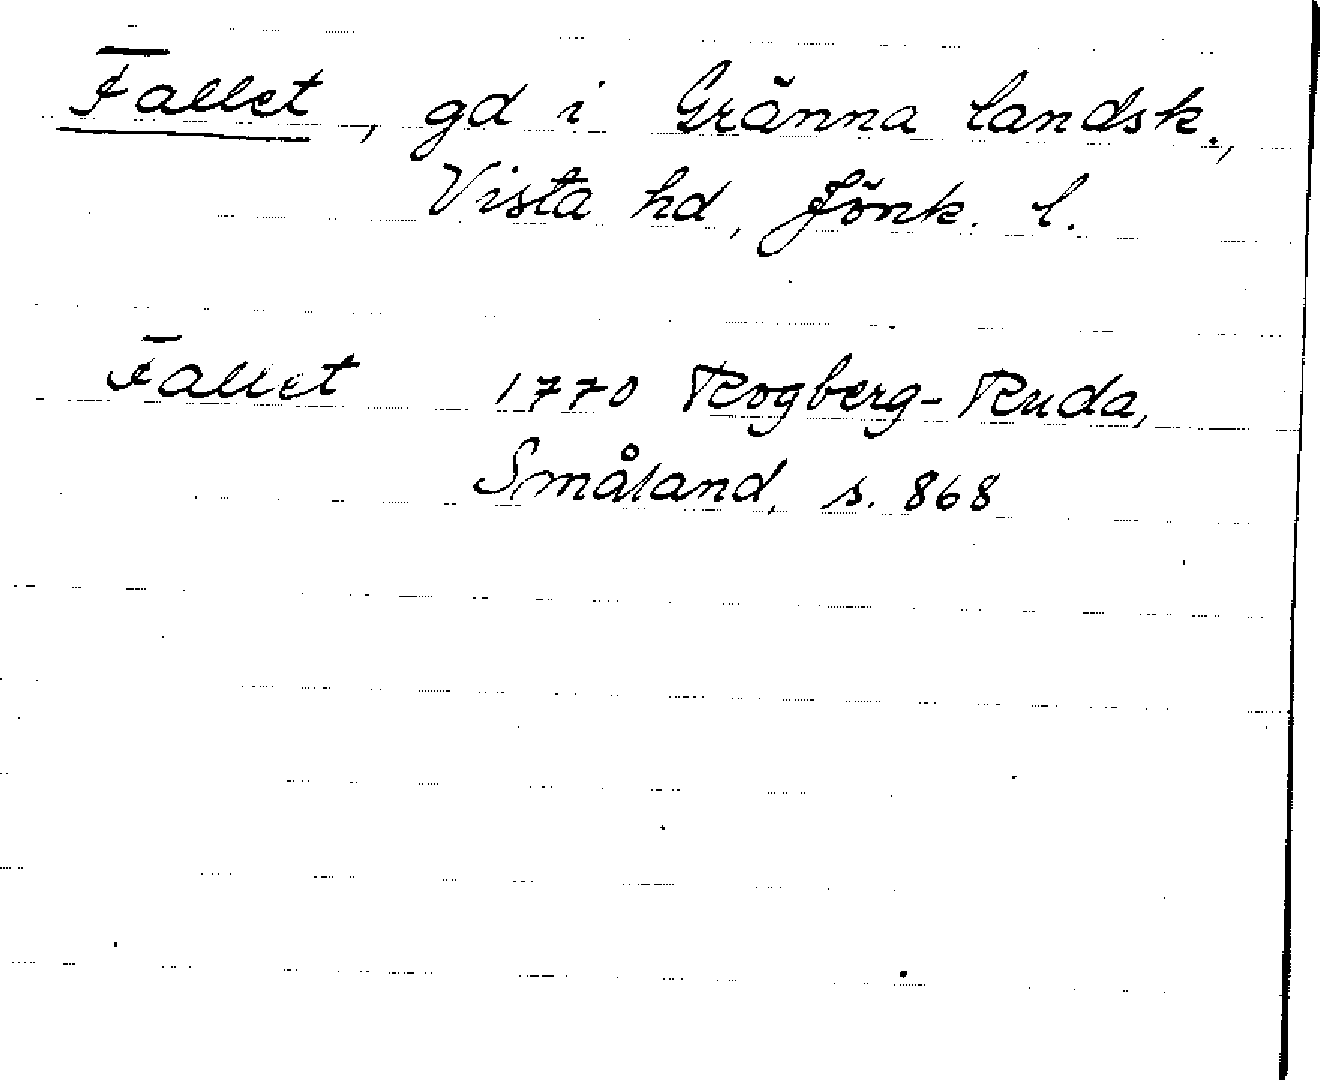 Fallet, gd i Gränna landsk.,
Vista hd, Jönk. l.
Fallet 1770 Rogberg-Ruda,
Småland, s. 868